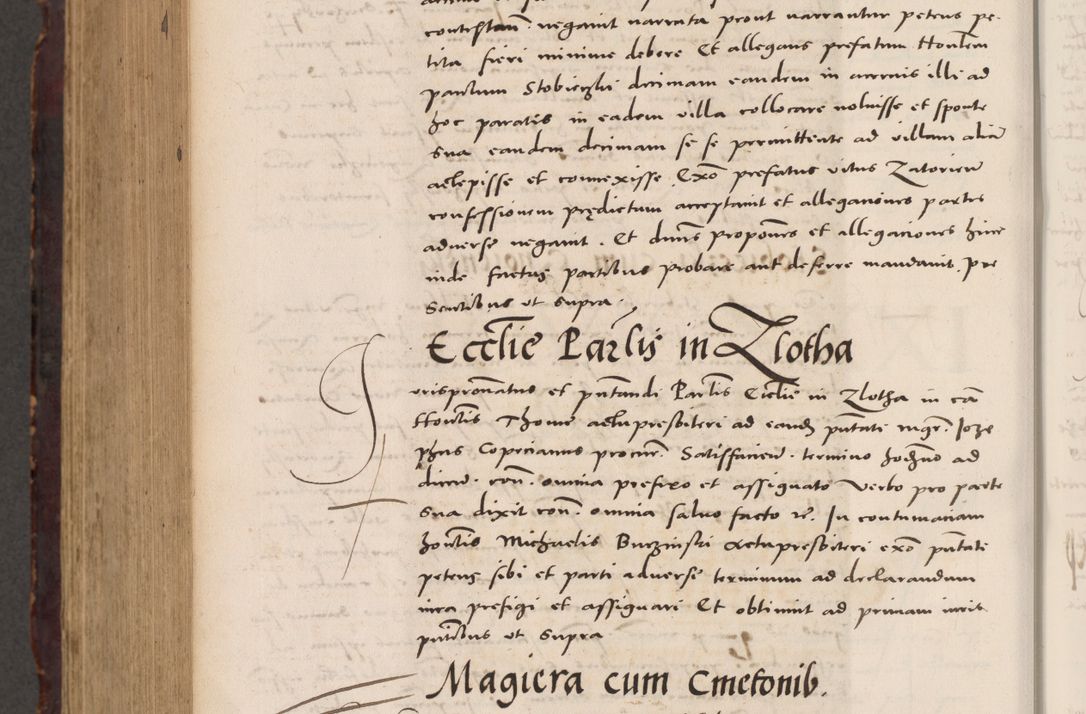 contestan. negavit narrata prout narrantur petens pe-
tita fieri minime debere Et allegans prefatum Honlem
pantum Stobieczki decimam eandem in acervis illi ad
hoc paratis in eadem villa collocare voluisse et sponte
sua eandem decimam se se permittente ad villam aliā
accepisse et connexisse. Exō prefatus vitus Zatorien
confessionem prędictum acceptavit et allegationes partis
adverse negavit. Et dnūs propoones et allegationes hinc
inde factas partibus probare aut deferre mandavit. pre
sentibus ut supra.
Ecclie Parlis in Zlotha
Jurispronatus et pntandi Parlis Ecclie in Zlotha in cā
Honlis Thome actu presbiteri ad eand pntate mgr. Joze
phus Copecianus procur. Satisfacien. termino hodno ad
dicen. con. omnia prefixo et assignato verbo pro parte
sua dixit con. omnia salvo facto rc. In contumaciam
honlis Michaelis Burzinski actu presbiteri exō pntate
petens sibi et parti adverse terminum ad declarandum
iura prefigi et assignari Et obtinuit ad primam iuris
pntibus ut supra
Magiera cum Cmetonib.